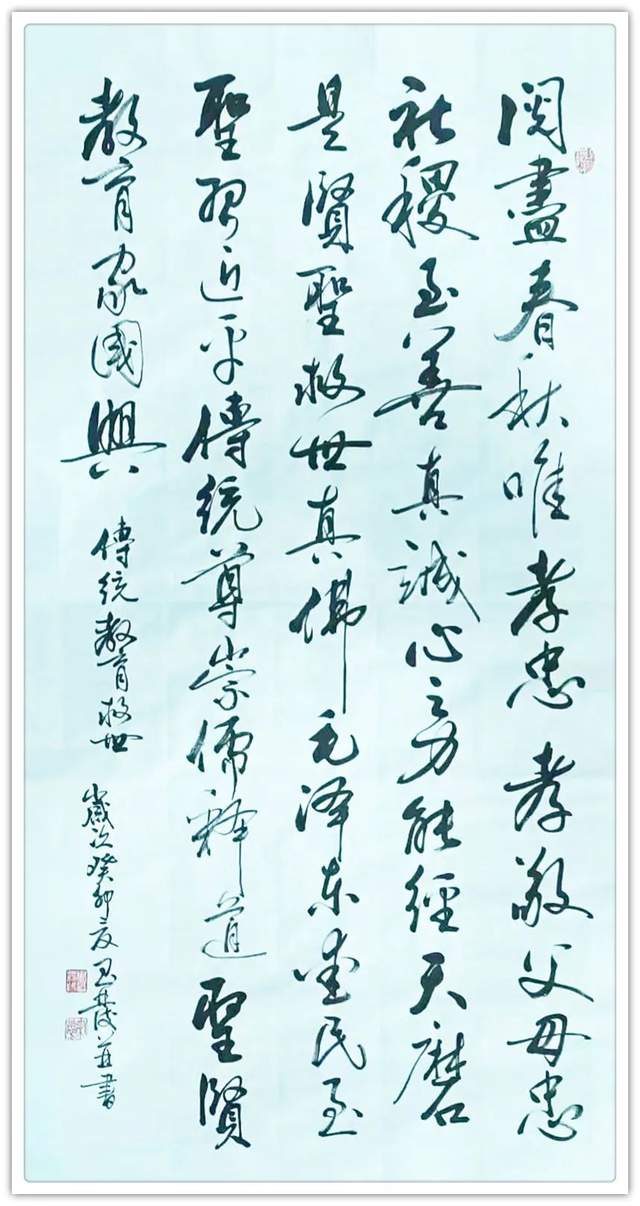 阅盡春秋唯孝忠孝敬父母忠
社稷至善真誠心之力能經天磨
是賢聖救世真佛毛泽东愛民至
聖習近平傳統尊崇儒释道聖賢
教育家國興
傳統教育救世
歲次癸卯夏並書